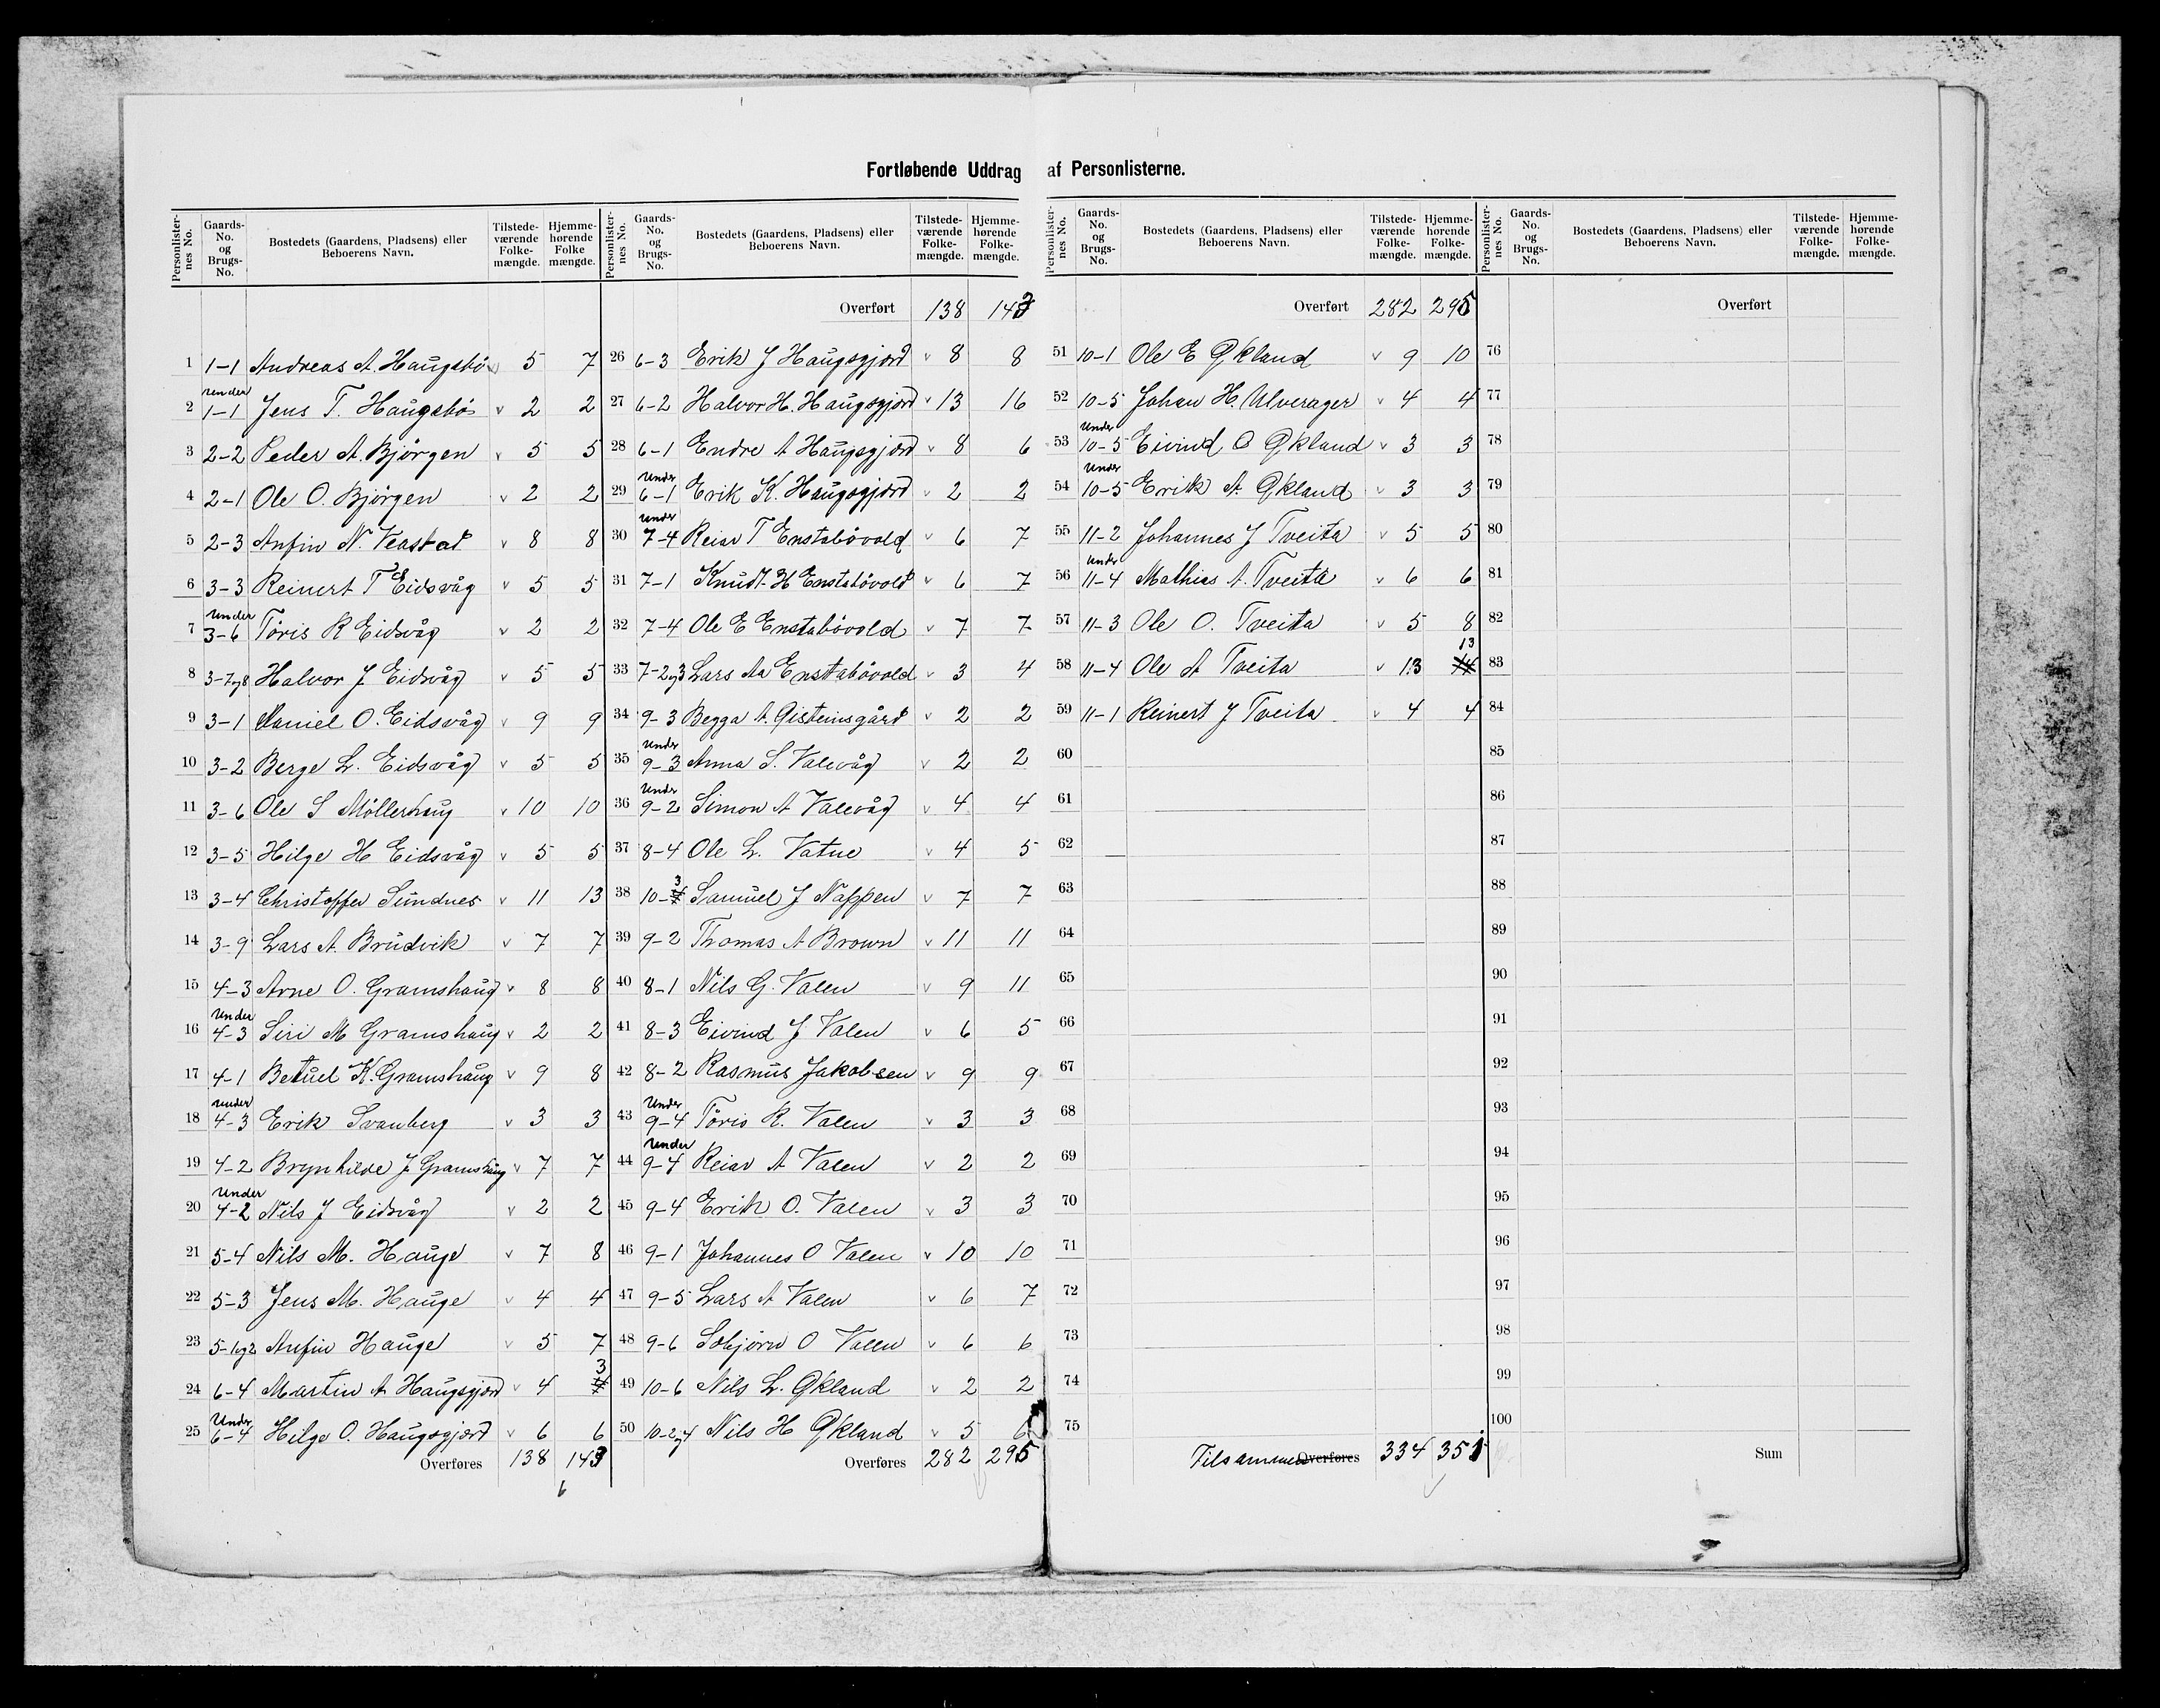 Fortløbende Uddrag af Personlisterne.
Personlister-nes No. Gaards-No. og Brugs-No. Bostedets (Gaardens, Pladsens) eller Beboerens Navn. Tilstede-værende Folke-mængde. Hjemme-hørende Folke mængde.
1 1-1 Andreas A. Haugsbø v 5 7
2 Under 1-1 Jens T. Haugsbø v 2 2
3 2-2 Peder A. Bjørgen v 5 5
4 2-1 Ole O. Bjørgen v 2 2
5 2-3 Anfin N. Veastad v 8 8
6 3-3 Reinert T Eidsvåg v 5 5
7 Under 3-6 Tøris R Eidsvåg v 2 2
8 3-7og8 Halvor J Eidsvåg v 5 5
9 3-1 Daniel O. Eidsvåg v 9 9
10 3-2 Berge L. Eidsvåg v 5 5
11 3-6 Ole S Møllerhaug v 10 10
12 3-5 Hilge H Eidsvåg v 5 5
13 3-4 Christoffer Sundnes v 11 13
14 3-9 Lars A. Brudvik v 7 7
15 4-3 Arne O. Gramshaug v 8 8
16 Under 4-3 Siri M Gramshaug v 2 2
17 4-1 Betuel K. Gramshaug v 9 8
18 Under 4-3 Erik Svanberg v 3 3
19 4-2 Brynhilde J Gramshaug v 7 7
20 Under 4-2 Nils J Eidsvåg v 2 2
21 5-4 Nils M. Hauge v 7 8
22 5-3 Jens M. Hauge v 4 4
23 5-1og2 Anfin Hauge v 5 7
24 6-4 Martin A Haugsgjerd v 4 3
25 Under 6-4 Hilge O. Haugsgjerd v 6 6
Overføres 138 143
6
Personlister-nes No. Gaards-No. og Brugs-No. Bostedets (Gaardens, Pladsens) eller Beboerens Navn. Tilstede-værende Folke-mængde. Hjemme-hørende Folke-mængde.
Overført 138 143
26 6-3 Erik J Haugsgjerd v 8 8
27 6-2 Halvor H. Haugsgjerd v 13 16
28 6-1 Endre A Haugsgjerd v 8 6
29 Under 6-1 Erik K. Haugsgjerd v 2 2
30 Under 7-4 Reiar T Enstabøvold v 6 7
31 7-1 Knudt H Enstabøvold v 6 7
32 7-4 Ole E Enstabøvold v 7 7
33 7-2og3 Lars Aa Enstabøvold v 3 4
34 9-3 Begga A. Øisteinsgård v 2 2
35 Under 9-3 Anna S. Valevåg v 2 2
36 Under 9-2 Simon A Valevåg v 4 4
37 8-4 Ole L. Vatne v 4 5
38 10-3 Samuel J Nappen v 7 7
39 9-2 Thomas A Brown v 11 11
40 8-1 Nils G. Valen v 9 11
41 8-3 Eivind J Valen v 6 5
42 8-2 Rasmus Jakobsen v 9 9
43 Under 9-4 Tøris R. Valen v 3 3
44 Under 9-4 Reiar A Valen v 2 2
45 9-4 Erik O. Valen v 3 3
46 9-1 Johannes O Valen v 10 10
47 9-5 Lars A Valen v 6 7
48 9-6 Sobjørn O Valen v 6 6
49 10-6 Nils L. Økland v 2 2
50 10-2og4 Nils H Økland v 5 6
Overføres 282 295
Personlister-nes No. Gaards-No. og Brugs-No. Bostedets (Gaardens, Pladsens) eller Beboerens Navn. Tilstede-værende Folke-mængde. Hjemme-hørende Folke-mængde.
Overført 282 295
51 10-1 Ole E Økland v 9 10
52 10-5 Johan H. Ulverager v 4 4
53 Under 10-5 Eivind O Økland v 3 3
54 Under 10-5 Erik A. Økland v 3 3
55 11-2 Johannes J Tveita v 5 5
56 Under 11-4 Mathias A. Tveita v 6 6
57 11-3 Ole O. Tveita v 5 8
58 11-4 Ole A Tveita v 13 13 14
59 11-1 Reinert J Tveita v 4 4
60
61
62
63
64
65
66
67
68
69
70
71
72
73
74
75
Tilsammen Overføres 334 351
Personlister-nes No. Gaards-No. og Brugs-No. Bostedets (Gaardens, Pladsens) eller Beboerens Navn. Tilstede-værende Folke-mængde. Hjemme-hørende Folke-mængde.
Overført
76
77
78
79
80
81
82
83
84
85
86
87
88
89
90
91
92
93
94
95
96
97
98
99
100
Sum